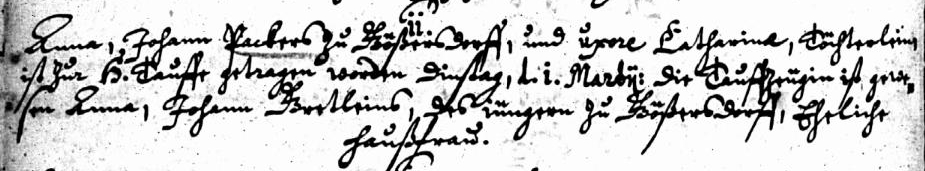 Anna, Johann Packers zu Bößersdorff, und uxore Catharinæ, Töchterlein,
ist zur H. Tauffe getragen worden Dinstag, d. 1. Martÿ: die Tauffzeugin ist gewe-
sen Anna, Johann Bretleins, des jüngern zu Bößersdorff, Eheliche
Haußfrau.